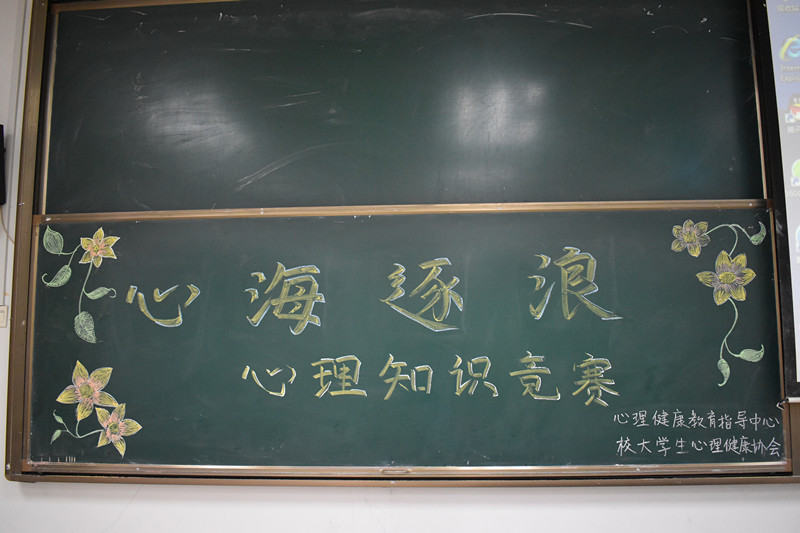 心海逐浪
心理知识竞赛
心理健康教育指导中心
校大学生心理健康协会